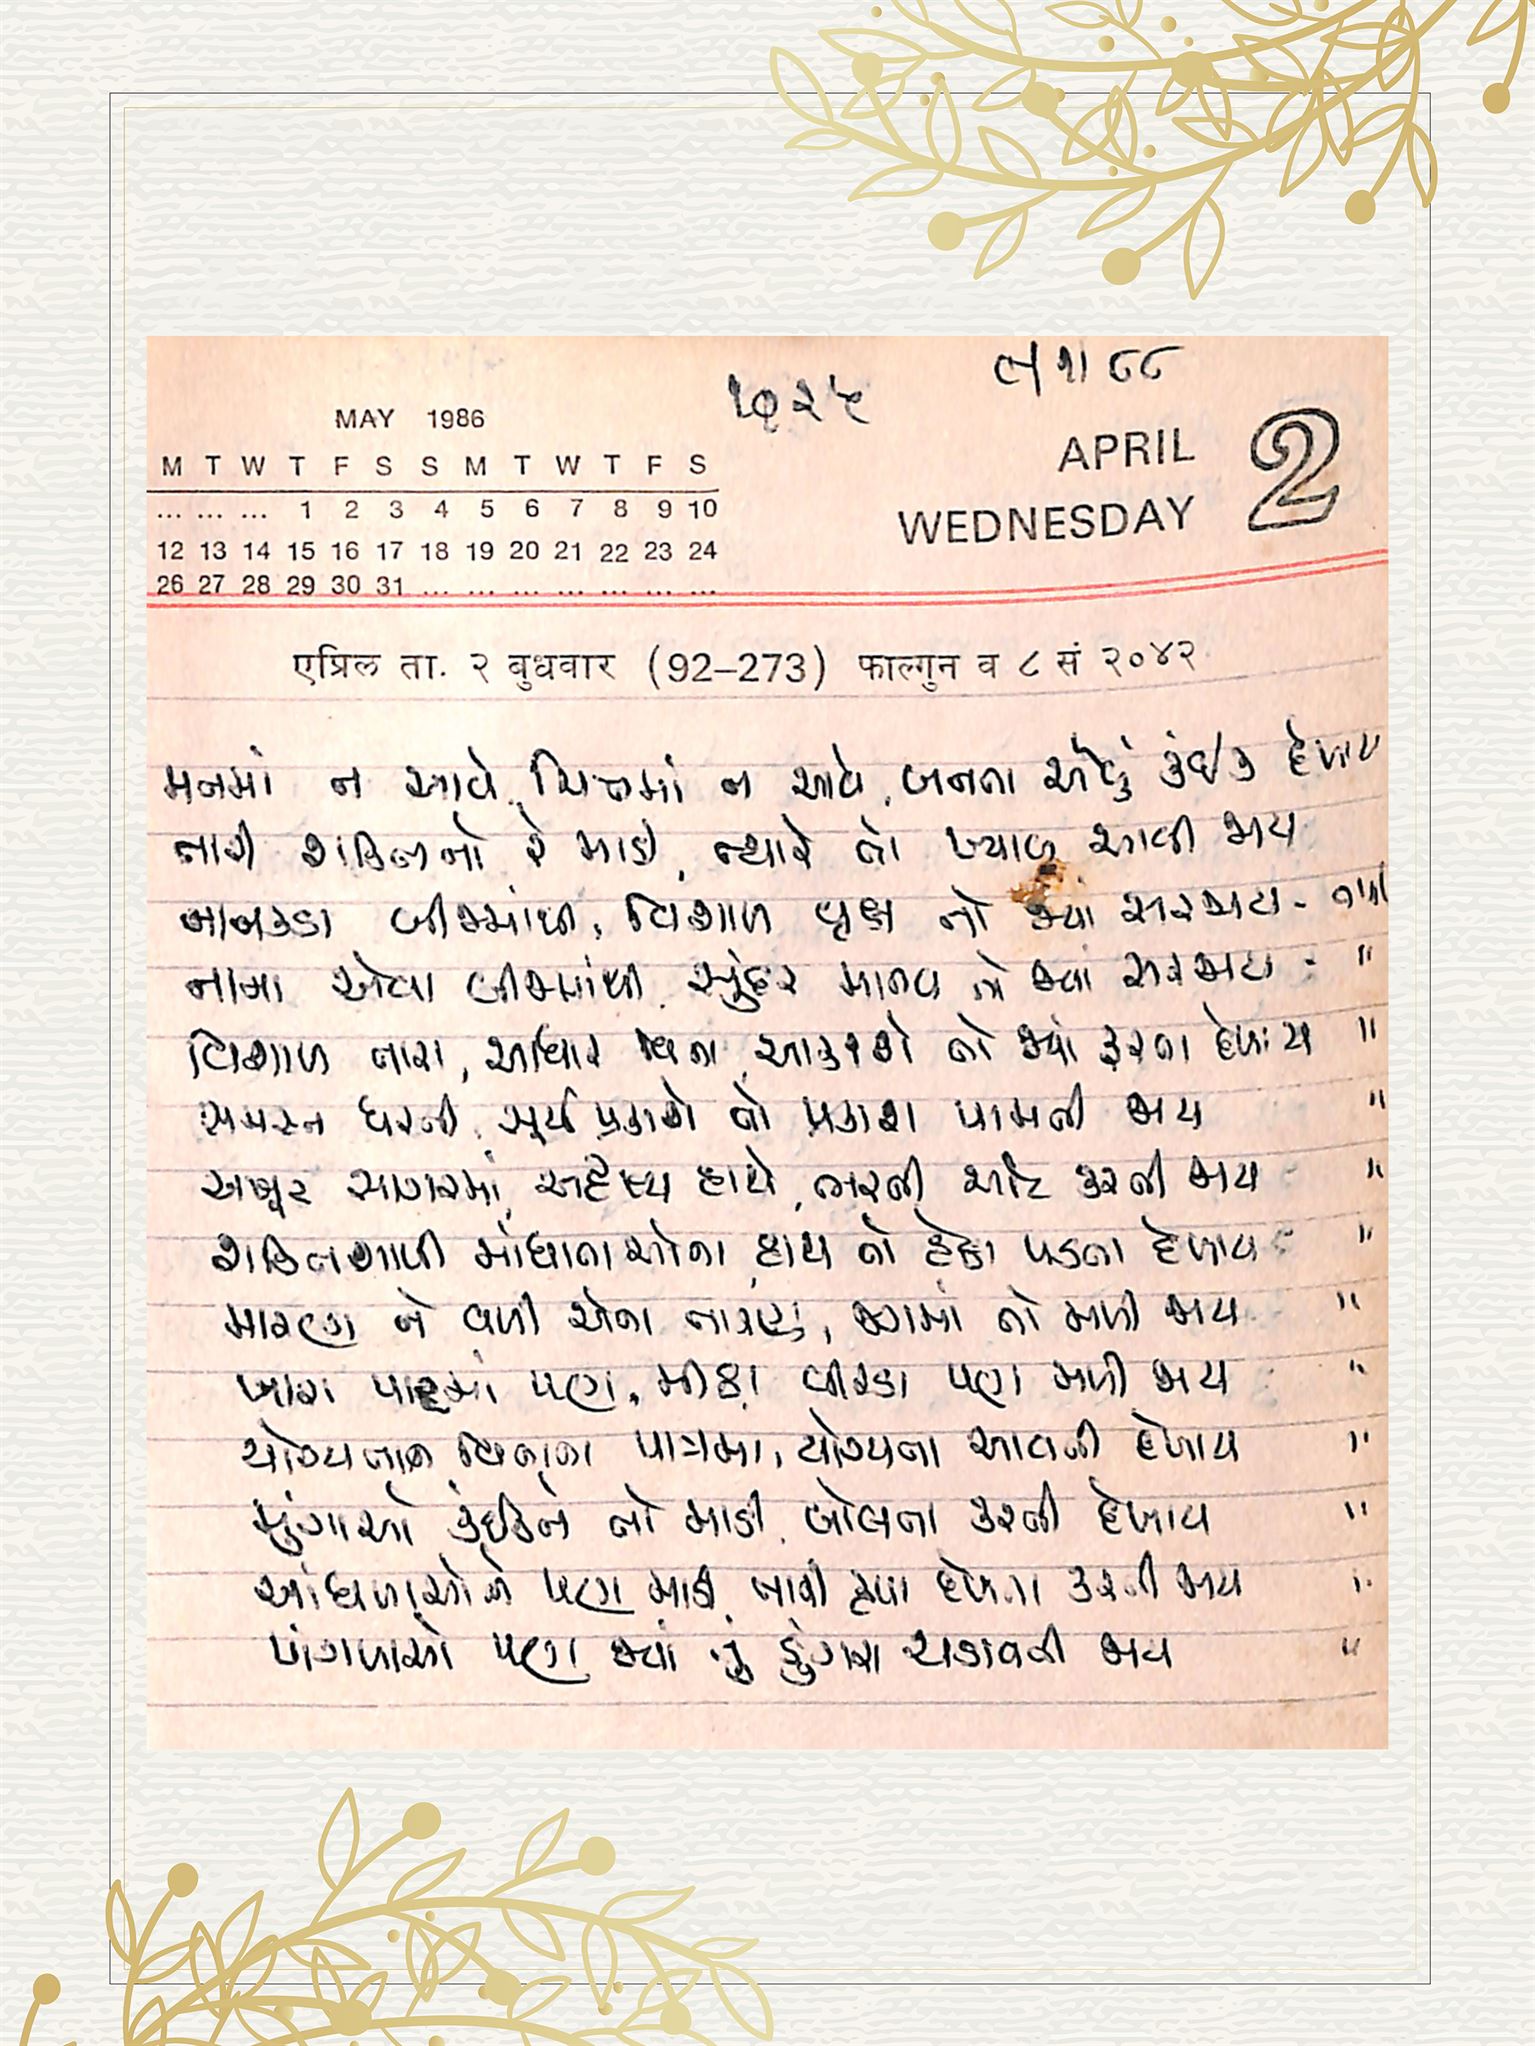 ૯/૧/૮૮
MAY 1986
M T W T F S S M T W T F S
... ... ... 1 2 3 4 5 6 7 8 9 10
12 13 14 15 16 17 18 19 20 21 22 23 24
26 27 28 29 30 31 ... ... ... ... ... ... ...
APRIL 2
WEDNESDAY
एप्रिल ता. २ बुधवार (92–273) फाल्गुन व ८ सं २०४२
મનમાં ન આવે, ચિત્તમાં ન આવે, બનતા એવું કંઈક દેખાય
તારી શક્તિનો રે માડી, ત્યારે તો ખ્યાલ આવી જાય
નાનકડા બીજમાંથી, વિશાળ વૃક્ષ તો જ્યાં સરજાય -
નાના એવા બીજમાંથી, સુંદર માનવ તો જ્યાં સરજાય - "
વિશાળ તારા, આધાર વિના, આકાશે તો જ્યાં ફરતા દેખાય "
સમસ્ત ધરતી, સૂર્ય પ્રકાશે તો પ્રકાશ પામતી જાય "
અફાટ સાગરમાં, અદૃશ્ય હાથે, ભરતી ઓટ કરતી જાય "
શક્તિશાળી માંધાતાઓના, હાથ તો હેઠા પડતા દેખાય "
મારણ ને વળી એના તારણ, જગમાં તો મળી જાય "
ખારા પાટમાં પણ, મીઠા વીરડા પણ મળી જાય "
યોગ્યતા વિનાના પાત્રમાં, યોગ્યતા આવતી દેખાય "
મુંગાઓ કંઈકને તો માડી, બોલતા કરતી દેખાય "
આંધળાઓને પણ માડી, તારી કૃપા દેખતા કરતી જાય "
પાંગળાઓ પણ જ્યાં તું ડુંગરા ચડાવતી જાય "